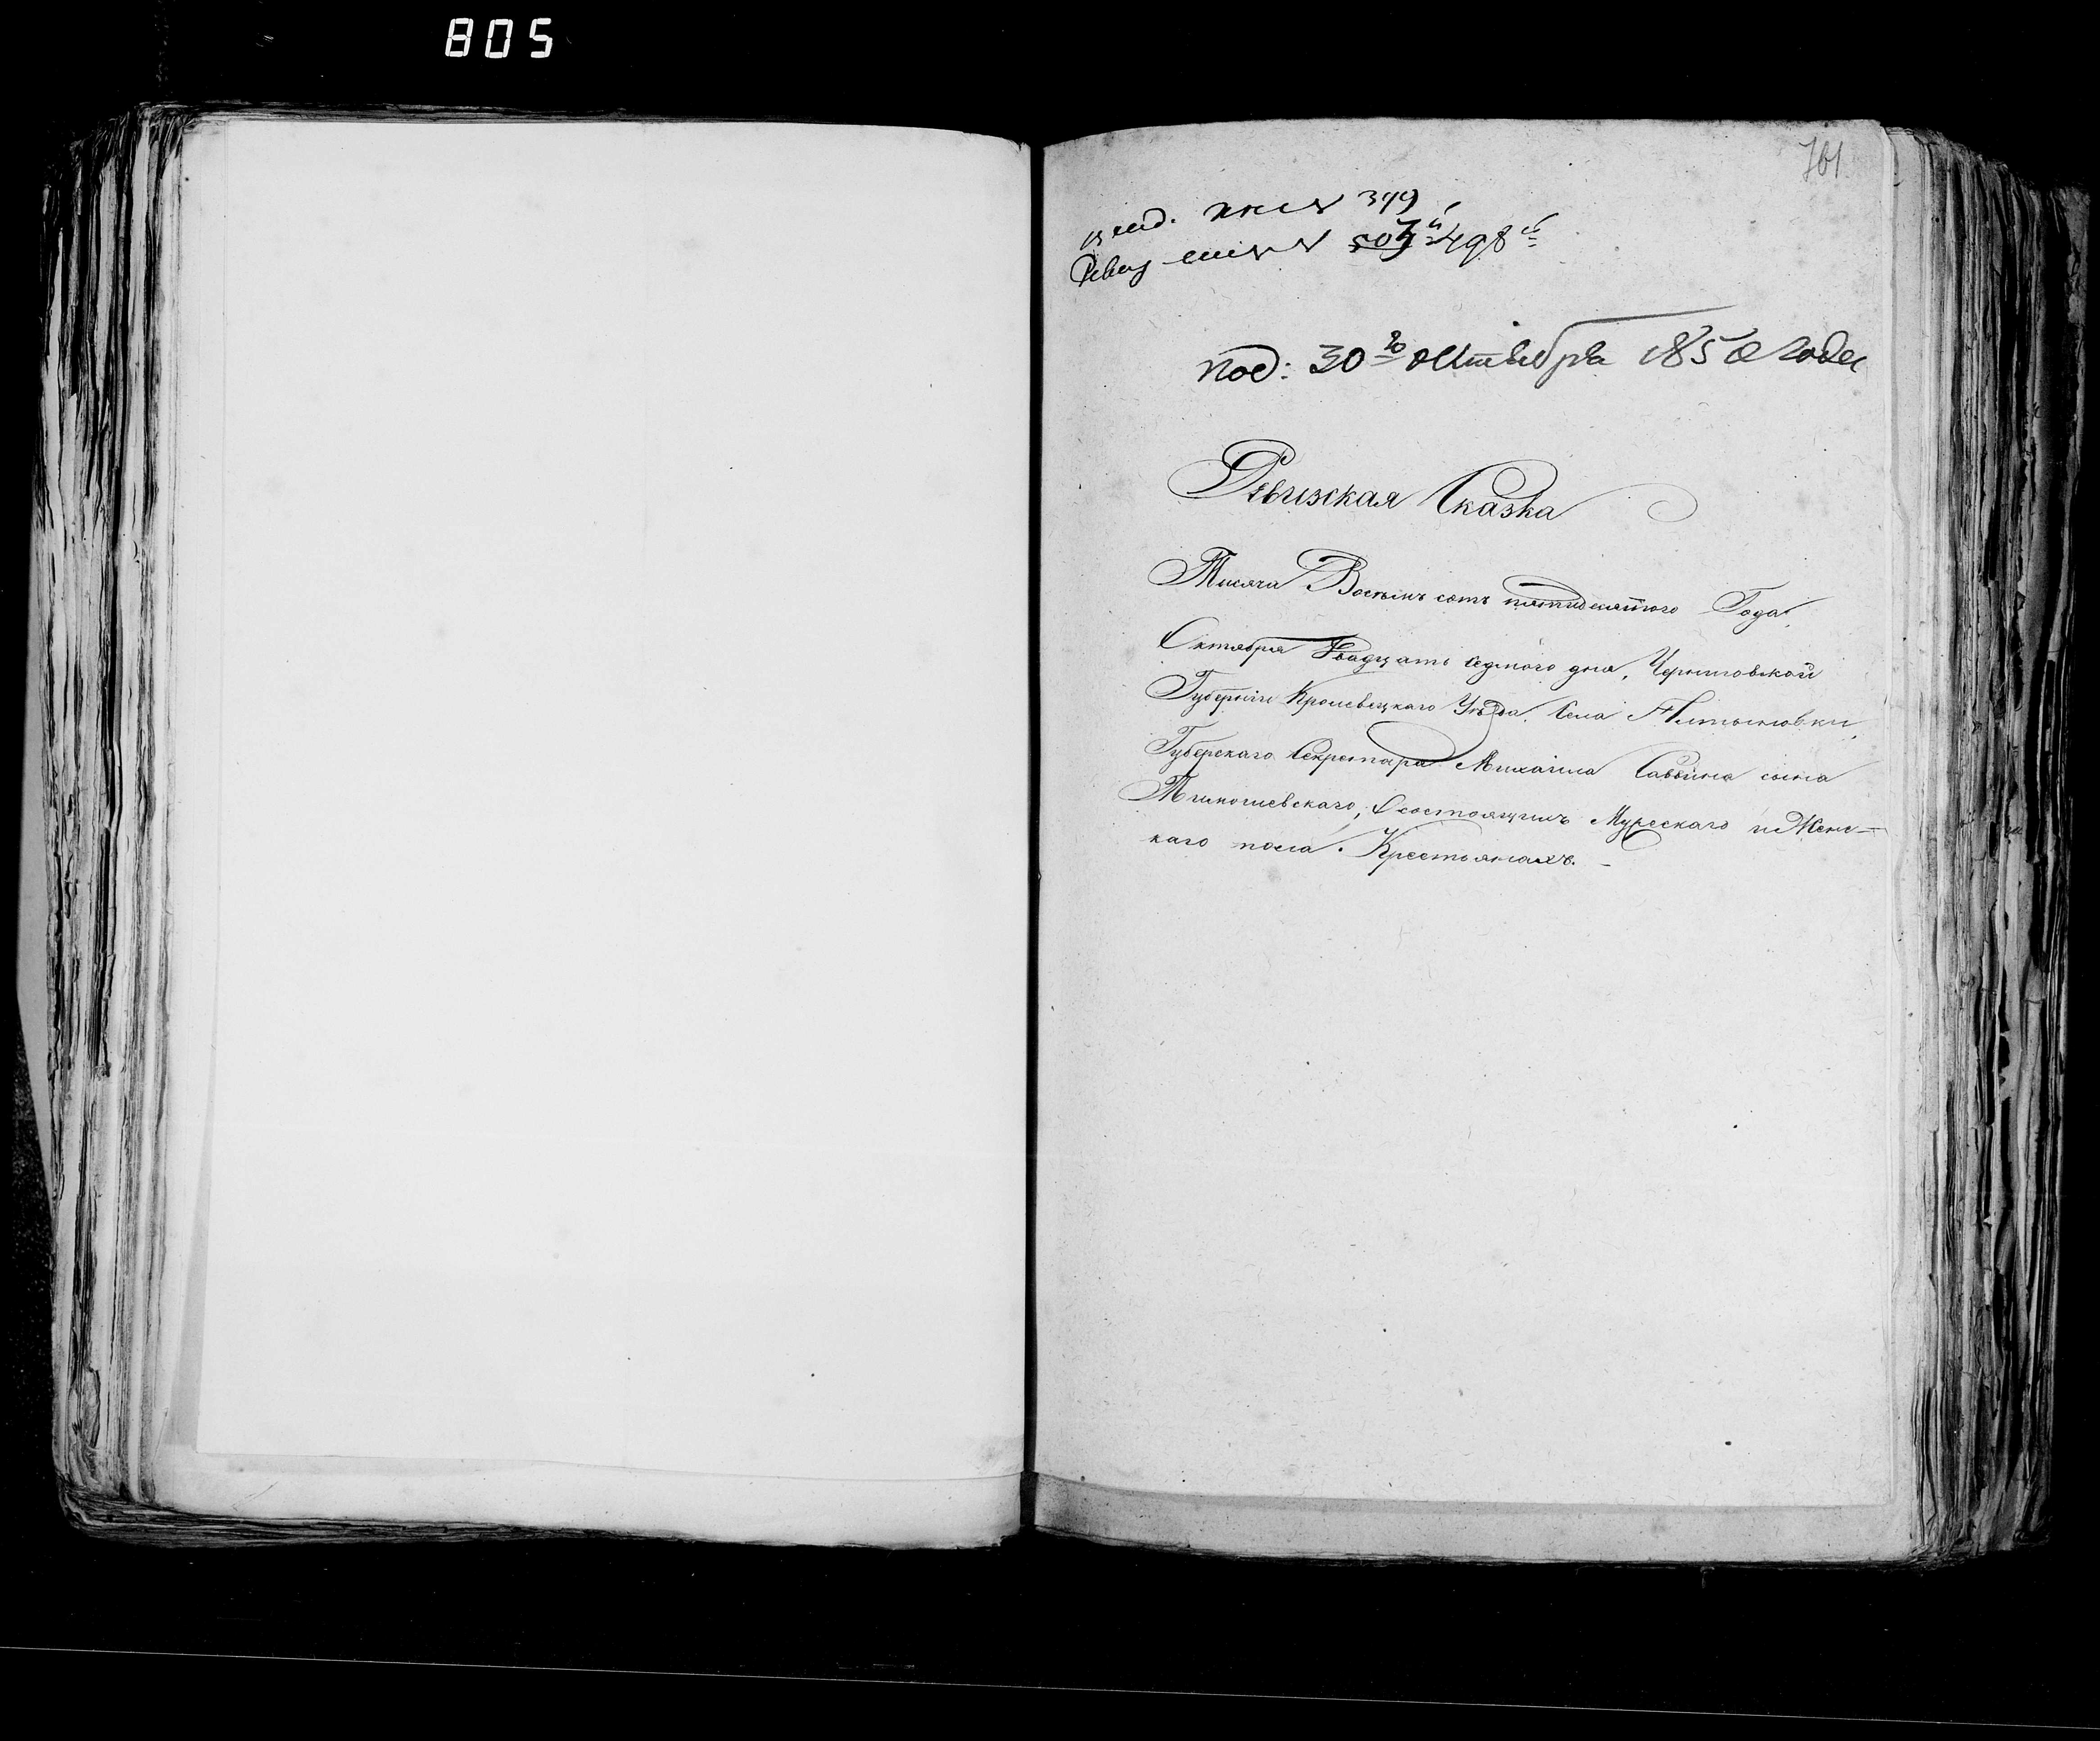 805
701
349
503 498
под: 30го октября 1850 года
Ревизская Сказка
Тисяча Восемь сотъ пятидесятого Года,
Октября двадцать седмого дня, Черниговской
Губерніи Кролевецкаго Уѣзда, Села
Губерскаго Секретара Михаила Саввина сына
О состоящихъ Мужескаго и Женс-
каго пола Крестьянахъ.